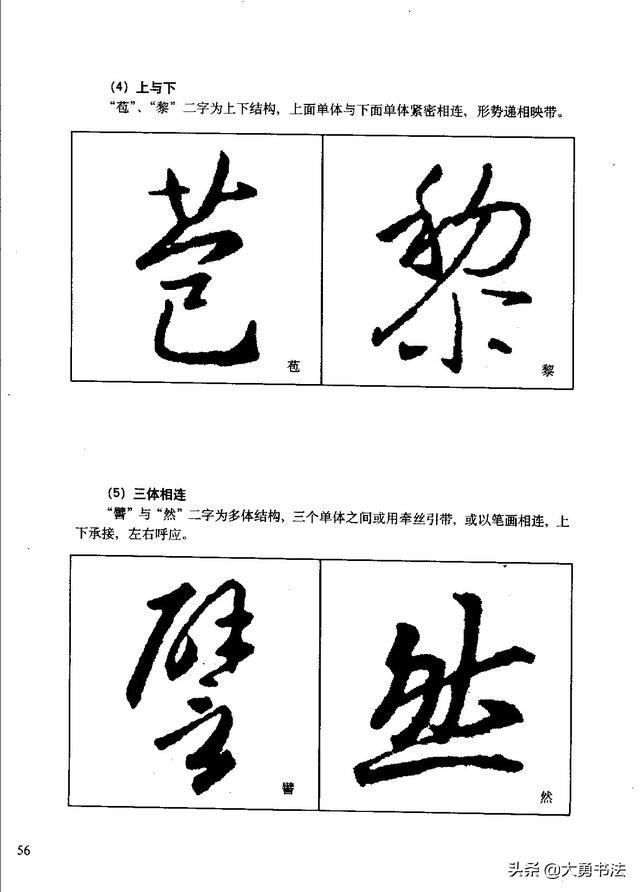 （4）上与下
“苞”、“黎”二字为上下结构，上面单体与下面单体紧密相连，形势递相映带。
苞 黎
苞
黎
（5）三体相连
“譬”与“然”二字为多体结构，三个单体之间或用牵丝引带，或以笔画相连，上
下承接，左右呼应。
譬 然
譬
然
56
头条 @大勇书法